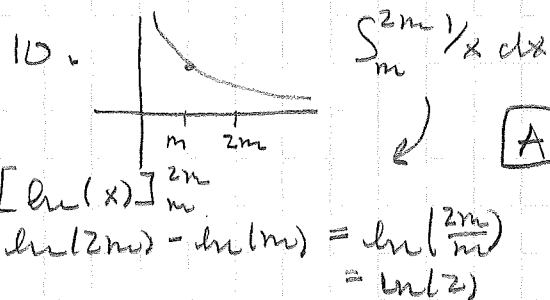 10.
∫_m^{2m} 1/x dx
m 2m
A
[ln(x)]_m^{2m}
ln(2m) - ln(m) = ln(2m/m)
= ln(2)